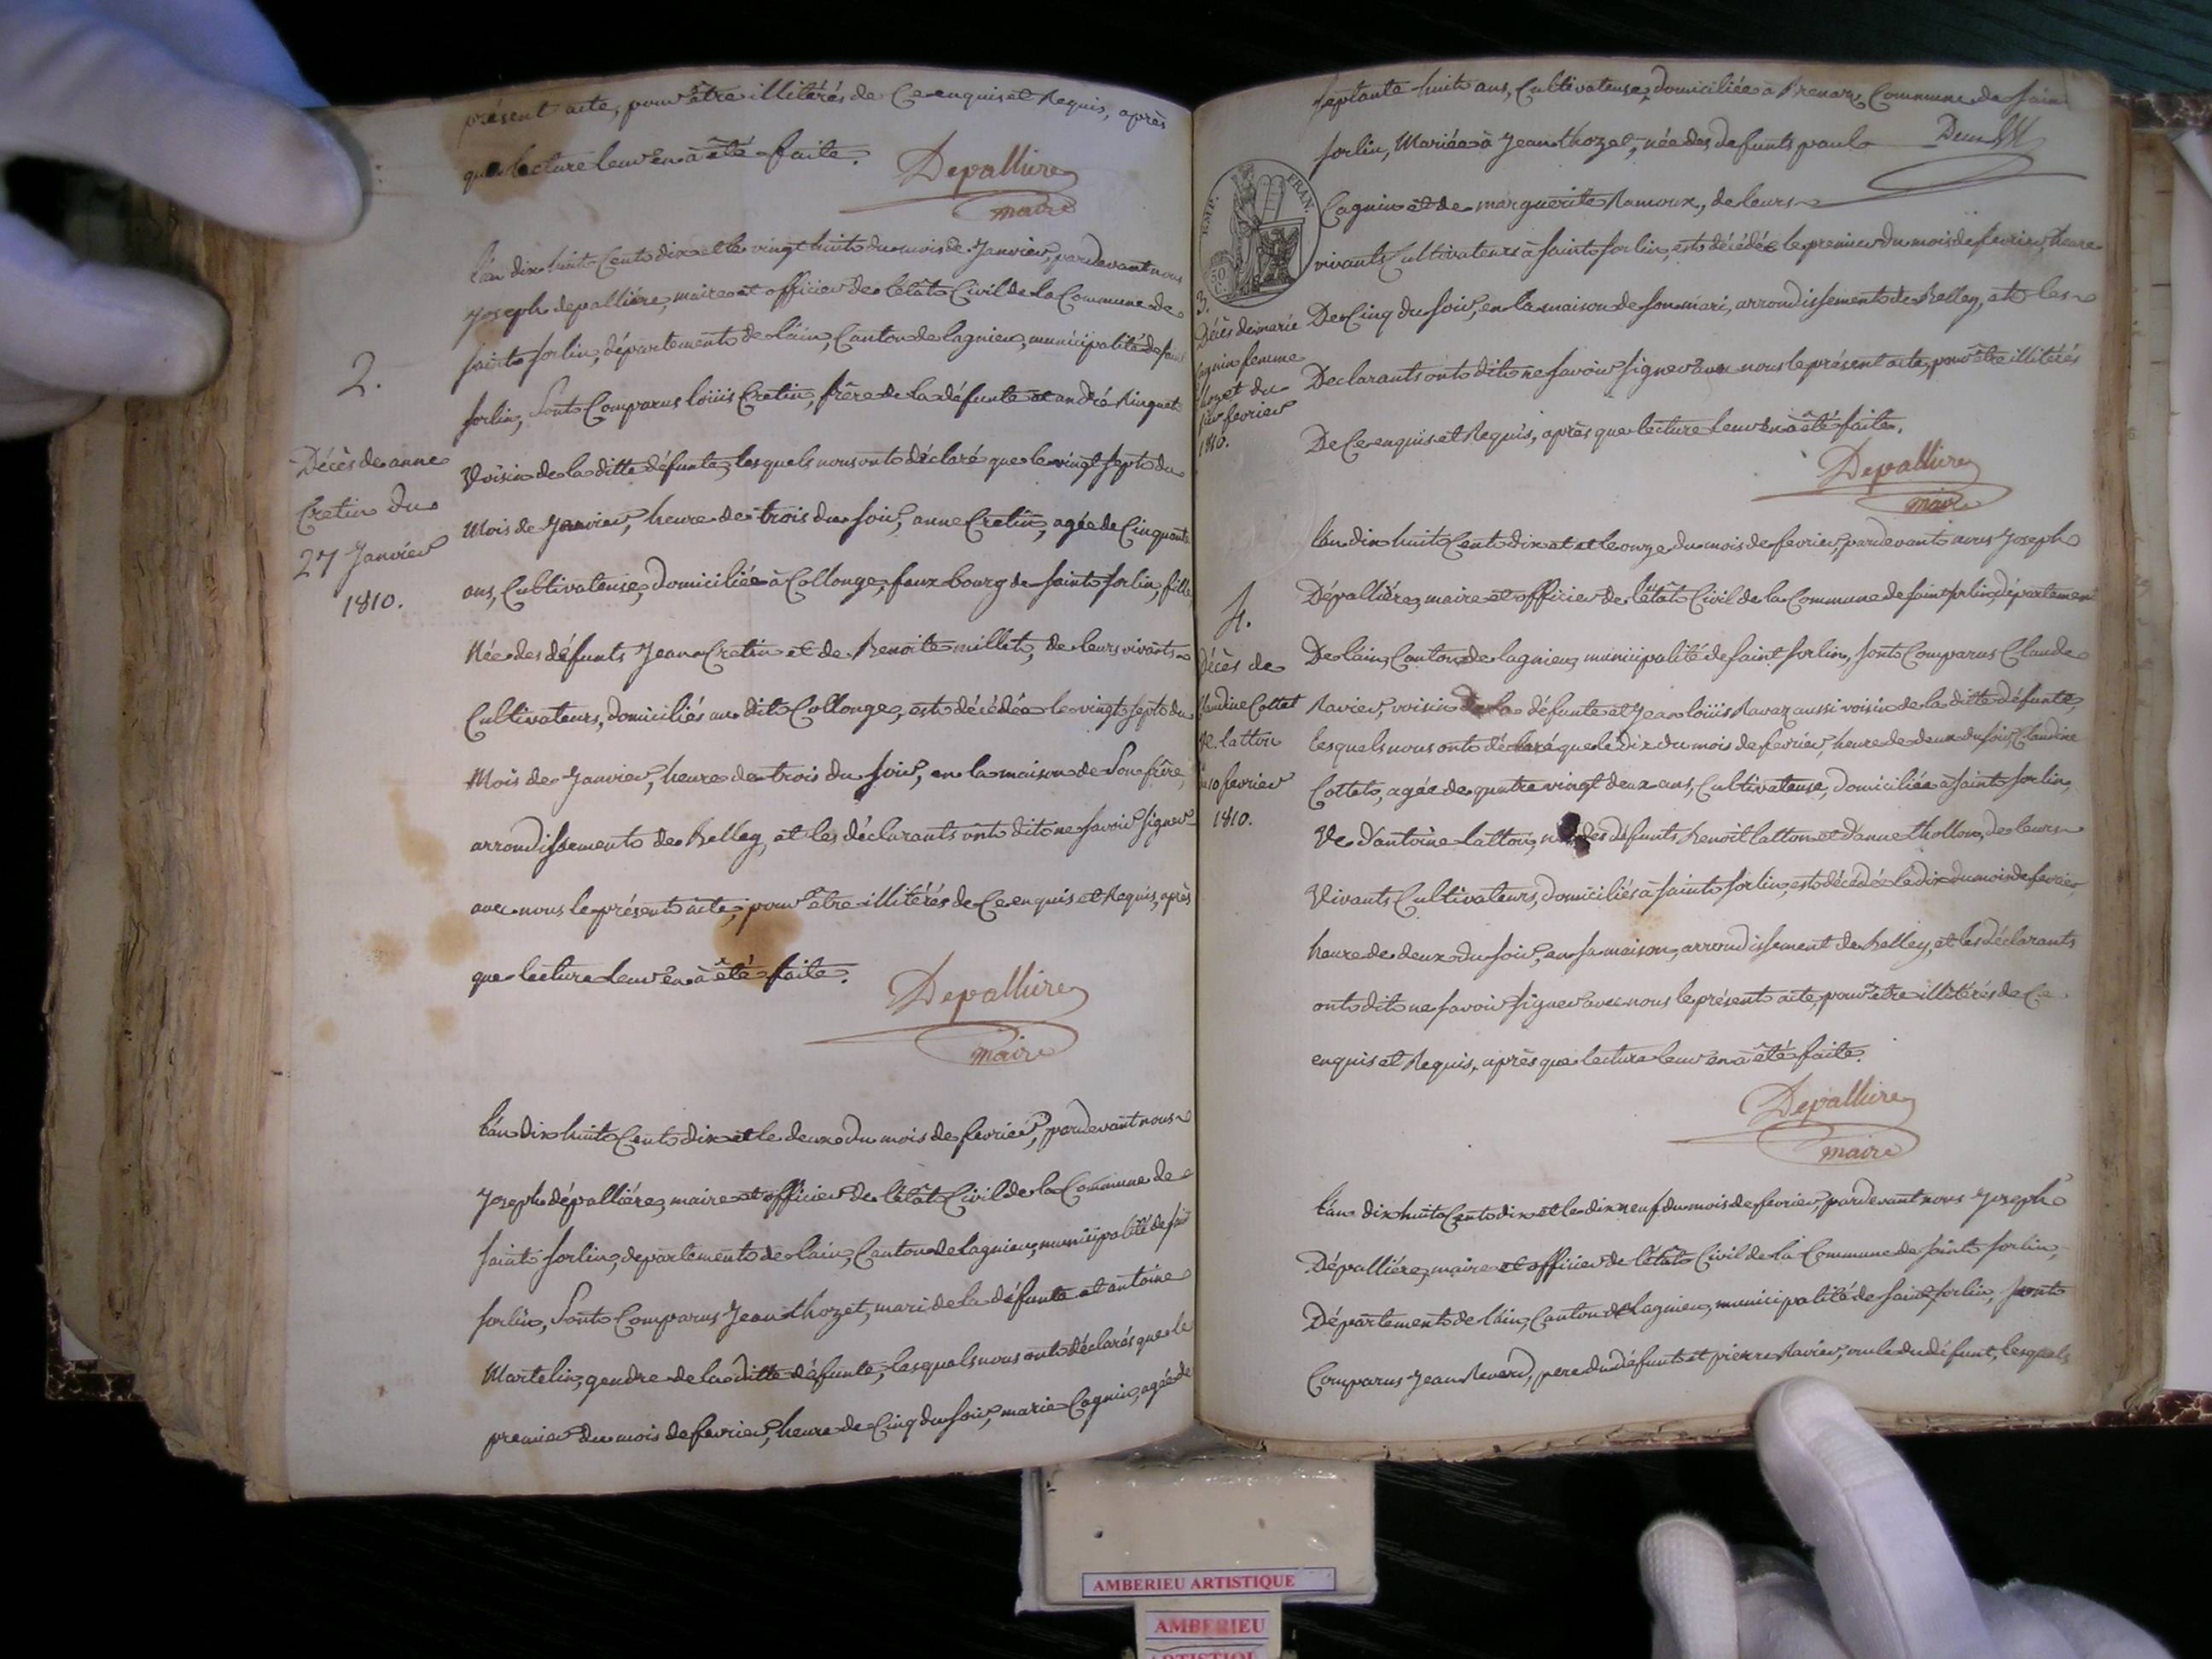 présent acte, pour être illitérés de Ce enquis et Requis, après
que lecture leur en à été faite.
Depalliere
maire
l'an dix huit Cent dix et le vingt huit du mois de Janvier, pardevant nous
Joseph depalliére, maire et officier de l'état Civil de la Commune de
saint sorlin, département de lain, Canton de lagnieu, municipalité de saint
sorlin, Sont Comparus loüis Cretin, frère de la défunte et andré Ringuet
Voisin de la ditte défunte, lesquels nous ont déclaré que le vingt sept du
Mois de Janvier, heure de trois du soir, anne Cretin, agée de Cinquante
ans, Cultivateuse, domiciliée à Collonge, faux bourg de saint sorlin, fille
Née des défunts Jean Cretin et de Benoite millet, de leurs vivants
Cultivateurs, domiciliés au dit Collonge, est décédée le vingt sept du
Mois de Janvier, heure de trois du soir, en la maison de Son frère,
arrondissement de Belley, et les déclarants ont dit ne savoir signer
avec nous le présent acte, pour être illitérés de Ce enquis et Requis, après
que lecture leur en à été faite.
Depalliere
maire
2.
Décès de anne
Cretin du
27 Janvier
1810.
l'an dix huit Cent dix et le deux du mois de fevrier, pardevant nous
Joseph dépalliére, maire et officier de l'état Civil de la Commune de
saint sorlin, departement de lain, Canton de lagnieu, municipalité de saint
sorlin, Sont Comparus Jean thozet, mari de la défunte et antoine
Martelin, gendre de la ditte défunte, lesquels nous ont déclarés que le
premier du mois de fevrier, heure de Cinq du soir, marie Cagnin, agée de
septante huit ans, Cultivateuse, domiciliée à Brenaz, Commune de saint
sorlin, Mariée à Jean thozet, née des defunts paul
Cagnin et de marguerite Ramoux, de leurs
vivants Cultivateurs à saint sorlin, est décédée le premier du mois de fevrier, heure
De Cinq du soir, en la maison de son mari, arrondissement de Belley, et les
Declarants ont dit ne savoir signer avec nous le présent acte, pour être illitérés
De Ce enquis et Requis, après que lecture leur en à été faite.
Depalliere
maire
EMP. FRAN.
50 C.
3.
Décès de marie
Cagnin femme
thozet du
1er fevrier
1810.
l'an dix huit Cent dix et et le onze du mois de fevrier, pardevant nous Joseph
Dépalliére, maire et officier de l'état Civil de la Commune de saint sorlin, département
De lain, Canton de lagnieu, municipalité de saint sorlin, sont Comparus Claude
Ravier, voisin de la défunte et Jean loüis Ravaz aussi voisin de la ditte défunte,
lesquels nous ont déclaré que le dix du mois de fevrier, heure de deux du soir, Claudine
Cottet, agée de quatre vingt deux ans, Cultivateuse, Domiciliée à saint sorlin,
Ve. d'antoine latton, née des défunts benoit latton et d'anne thollon, de leurs
Vivants Cultivateurs, domiciliés à saint sorlin, est décédée le dix du mois de fevrier,
heure de deux du soir, en sa maison, arrondissement de belley, et les déclarants
ont dit ne savoir signer avec nous le présent acte, pour être illitérés de Ce
enquis et Requis, après que lecture leur en à été faite.
Depalliere
maire
4.
Décès de
Claudine Cottet
Ve. latton
du 10 fevrier
1810.
l'an dix huit Cent dix et le dix neuf du mois de fevrier, pardevant nous Joseph
Dépalliére, maire et officier de l'état Civil de la Commune de saint sorlin,
Département de lain, Canton de lagnieu, municipalité de saint sorlin, sont
Comparus Jean Reverd, pere du défunt et pierre Ravier, oncle du défunt, lesquels
AMBERIEU ARTISTIQUE
AMBERIEU
ARTISTIQUE